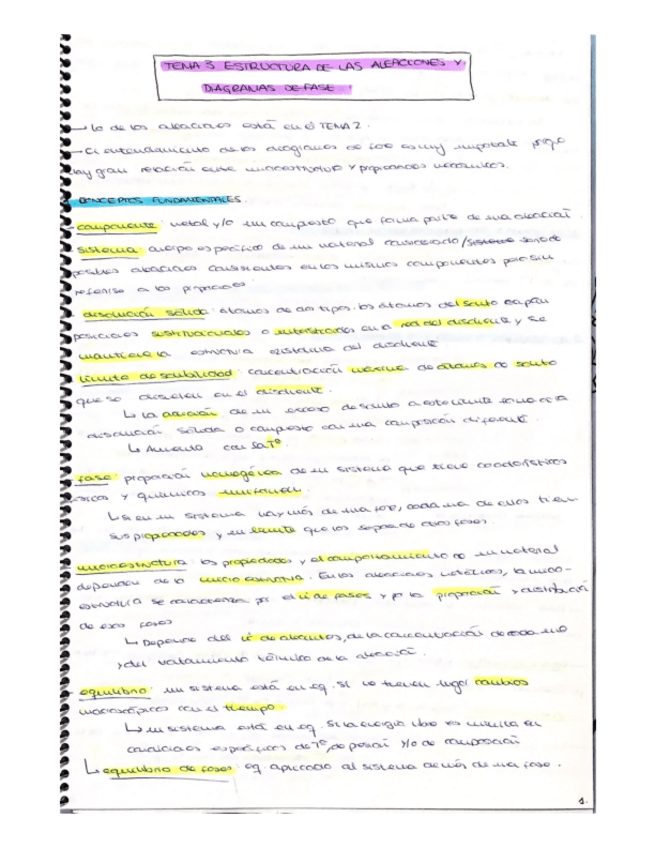 TEMA 3 ESTRUCTURA DE LAS ALEACIONES Y
DIAGRAMAS DE FASE
→ lo de las aleaciones está en el TEMA 2.
→ El entendimiento de los diagramas de fase es muy importante porque
hay gran relación entre microestructura y propiedades mecánicas.
CONCEPTOS FUNDAMENTALES
- componente: metal y/o un compuesto que forma parte de una aleación
sistema: cuerpo específico de un material considerado / serie de
posibles aleaciones consistentes en los mismos componentes pero sin
referirse a las proporciones.
- disolución sólida: átomos de dos tipos. los átomos del soluto ocupan
posiciones sustitucionales o intersticiales en la red del disolvente y se
mantiene la estructura cristalina del disolvente
límite de solubilidad: concentración máxima de átomos de soluto
que se disuelven en el disolvente.
↳ la adición de un exceso de soluto a este límite forma otra
disolución sólida o compuesto con una composición diferente.
↳ Aumenta con la Tª.
fase: proporción homogénea de un sistema que tiene características
físicas y químicas uniformes.
↳ si en un sistema hay más de una fase, cada una de ellas tiene
sus propiedades y un límite que los separa de otras fases.
microestructura: las propiedades y el comportamiento de un material
dependen de la microestructura. En las aleaciones metálicas, la micro-
estructura se caracteriza por el nº de fases y por la proporción y distribución
de esas fases
↳ Depende del nº de aleantes, de la concentración de cada uno
y del tratamiento térmico de la aleación.
- equilibrio: un sistema está en eq. si no tienen lugar cambios
macroscópicos con el tiempo.
↳ un sistema está en eq. si la energía libre es mínima en
condiciones específicas de Tª, de presión y/o de composición
↳ equilibrio de fases: eq. aplicado al sistema de más de una fase.
1.